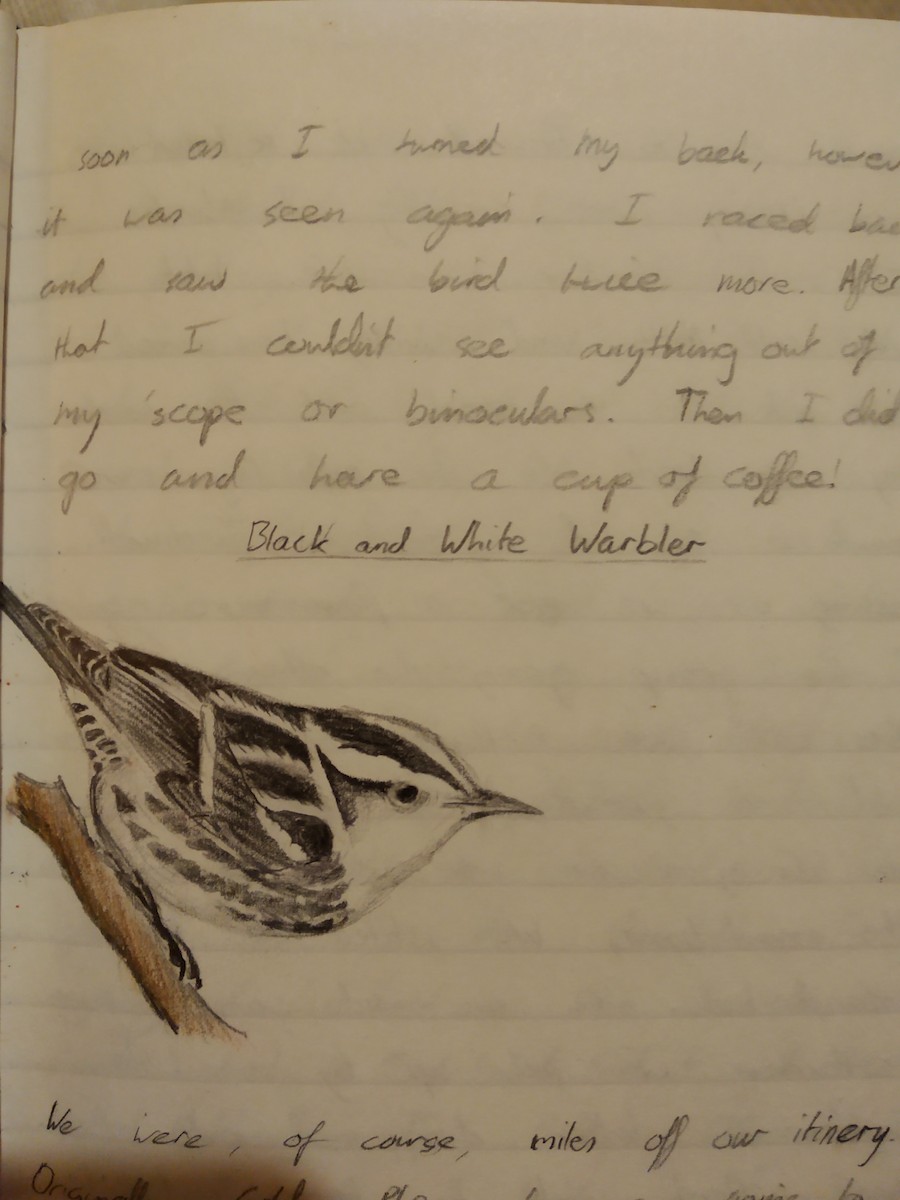 soon as I turned my back, howev
it was seen again. I raced bac
and saw the bird twice more. After
that I couldn't see anything out of
my 'scope or binoculars. Then I did
go and have a cup of coffee!
Black and White Warbler
We were, of course, miles off our itinery.